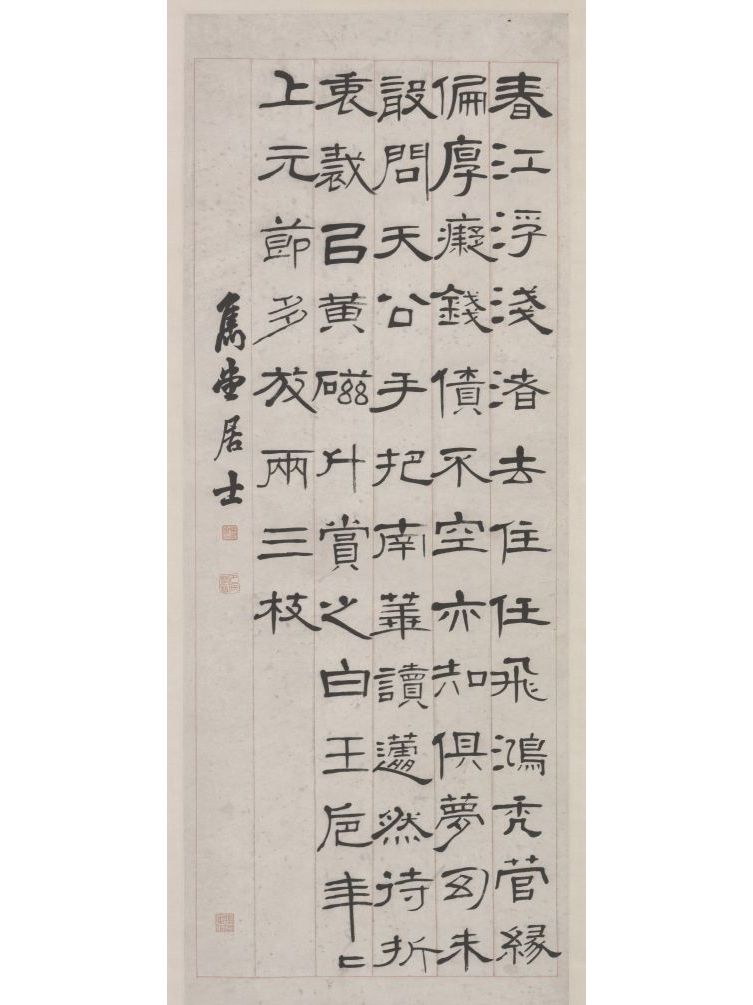 春江浮淺渚去住任飛鴻禿管緣
偏厚癡錢債不空亦知俱夢幻未
敢問天公手把南華讀蘧然待折
衷裁㠯黃磁斗賞之白玉卮年〻
上元節多放兩三枝
雋堂居士